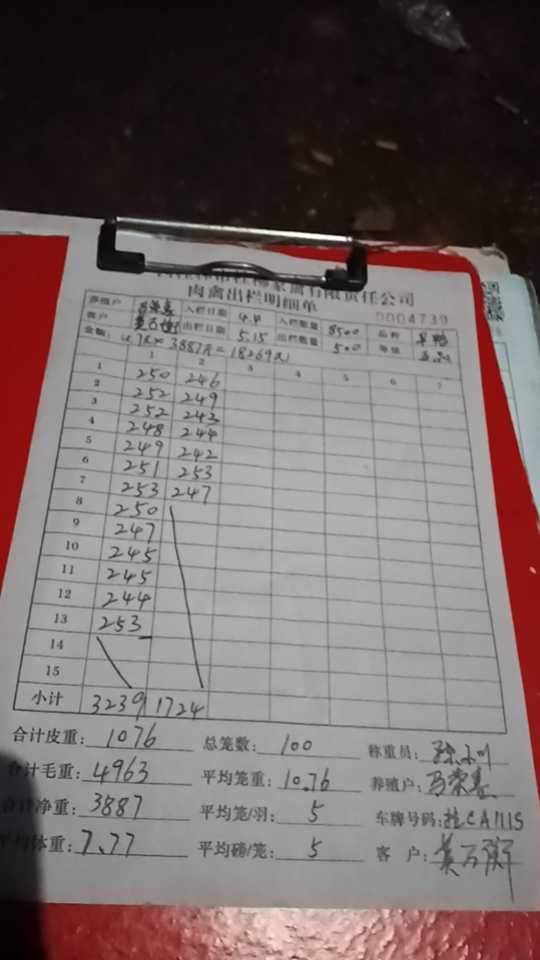 家禽有限责任公司
肉禽出栏明细单
0004739
养殖户 入栏日期 4.4 入栏数量 8500 品种
客户 出栏日期 5.15 出栏数量 500 等级
金额: 4.7元× 3887斤= 18269元
1 2 3 4 5 6 7
1 250 246
2 252 249
3 252 243
4 248 244
5 249 242
6 251 253
7 253 247
8 250
9 247
10 245
11 245
12 244
13 253
14
15
小计 3239 1724
合计皮重: 1076 总笼数: 100 称重员:
合计毛重: 4963 平均笼重: 10.76 养殖户:
合计净重: 3887 平均笼/羽: 5 车牌号码: 桂CA1115
平均体重: 7.77 平均磅/笼: 5 客 户: 黄万衡